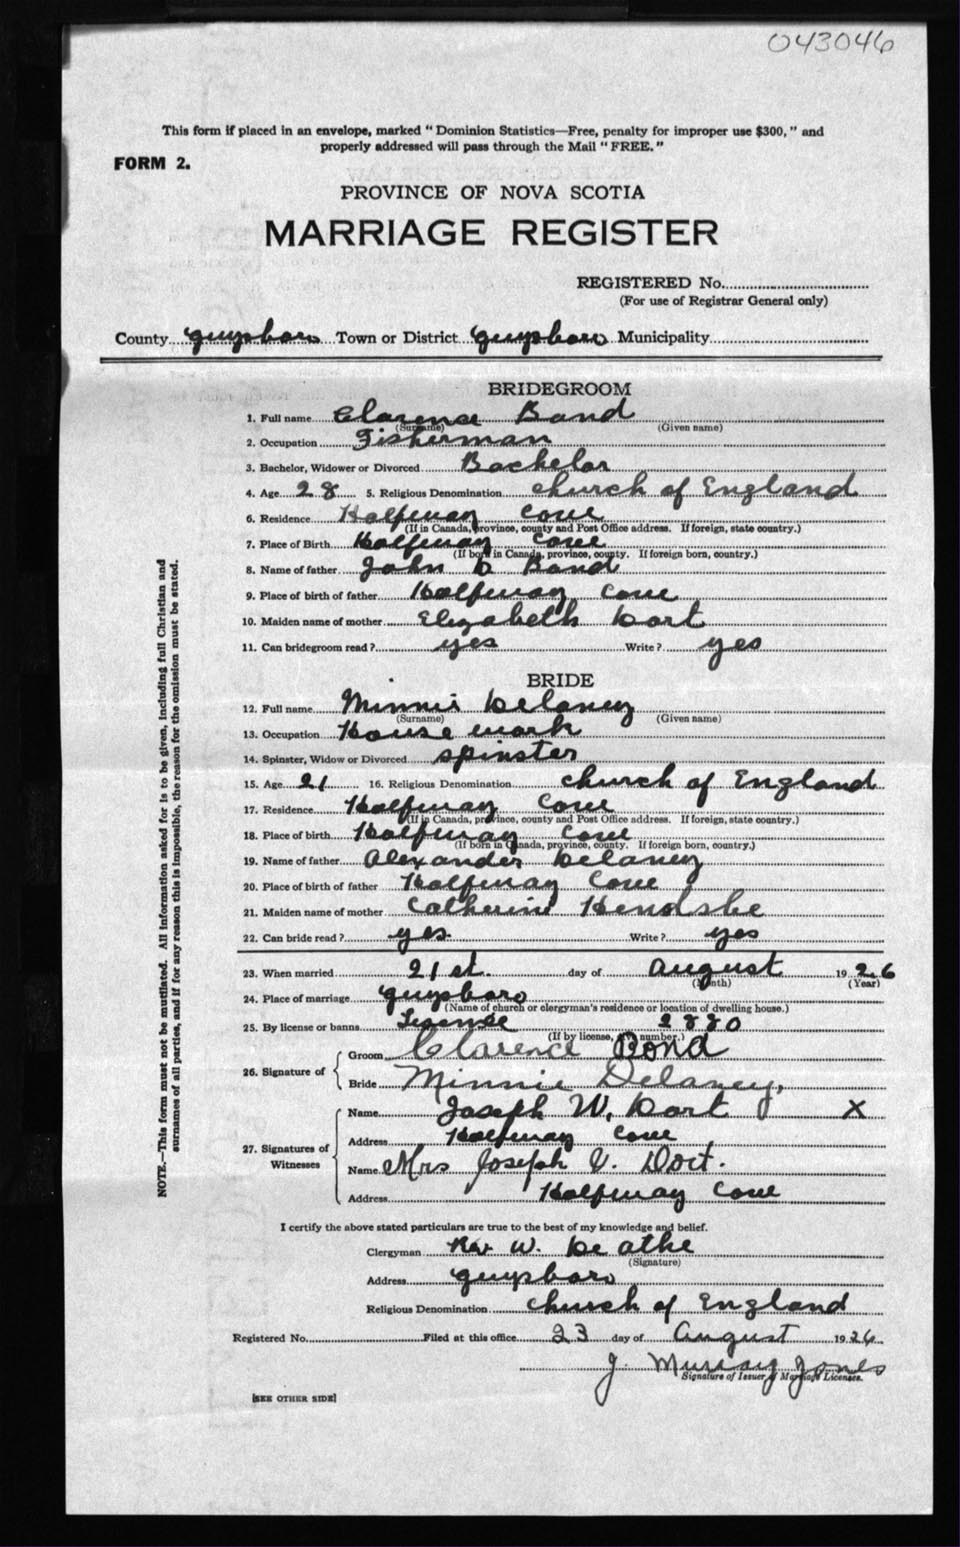 043046
This form if placed in an envelope, marked "Dominion Statistics—Free, penalty for improper use $300," and
properly addressed will pass through the Mail "FREE."
FORM 2.
PROVINCE OF NOVA SCOTIA
MARRIAGE REGISTER
REGISTERED No.
(For use of Registrar General only)
County Guysboro Town or District Guysboro Municipality
BRIDEGROOM
1. Full name Clarence Bond
(Surname) (Given name)
2. Occupation Fisherman
3. Bachelor, Widower or Divorced Bachelor
4. Age 28 5. Religious Denomination church of England
6. Residence Halfway Cove
(If in Canada, province, county and Post Office address. If foreign, state country.)
7. Place of Birth Halfway Cove
(If born in Canada, province, county. If foreign born, country.)
8. Name of father John D Bond
9. Place of birth of father Halfway Cove
10. Maiden name of mother Elizabeth Dort
11. Can bridegroom read? yes Write? yes
BRIDE
12. Full name Minnie Delaney
(Surname) (Given name)
13. Occupation House work
14. Spinster, Widow or Divorced spinster
15. Age 21 16. Religious Denomination church of England
17. Residence Halfway Cove
(If in Canada, province, county and Post Office address. If foreign, state country.)
18. Place of birth Halfway Cove
(If born in Canada, province, county. If foreign born, country.)
19. Name of father Alexander Delaney
20. Place of birth of father Halfway Cove
21. Maiden name of mother Catherine Hendsbe
22. Can bride read? yes Write? yes
23. When married 21st. day of August 1926
(Month) (Year)
24. Place of marriage Guysboro
(Name of church or clergyman's residence or location of dwelling house.)
25. By license or banns License 2880
(If by license, give number.)
26. Signature of
Groom Clarence Bond
Bride Minnie Delaney,
27. Signatures of Witnesses
Name Joseph W. Dort X
Address Halfway Cove
Name Mrs Joseph W. Dort.
Address Halfway Cove
I certify the above stated particulars are true to the best of my knowledge and belief.
Clergyman Rev W. De athe
(Signature)
Address Guysboro
Religious Denomination church of England
Registered No. Filed at this office 23 day of August 1926
J. Murray Jones
Signature of Issuer of Marriage Licenses.
[SEE OTHER SIDE]
NOTE.—This form must not be mutilated. All information asked for is to be given, including full Christian and
surnames of all parties, and if for any reason this is impossible, the reason for the omission must be stated.